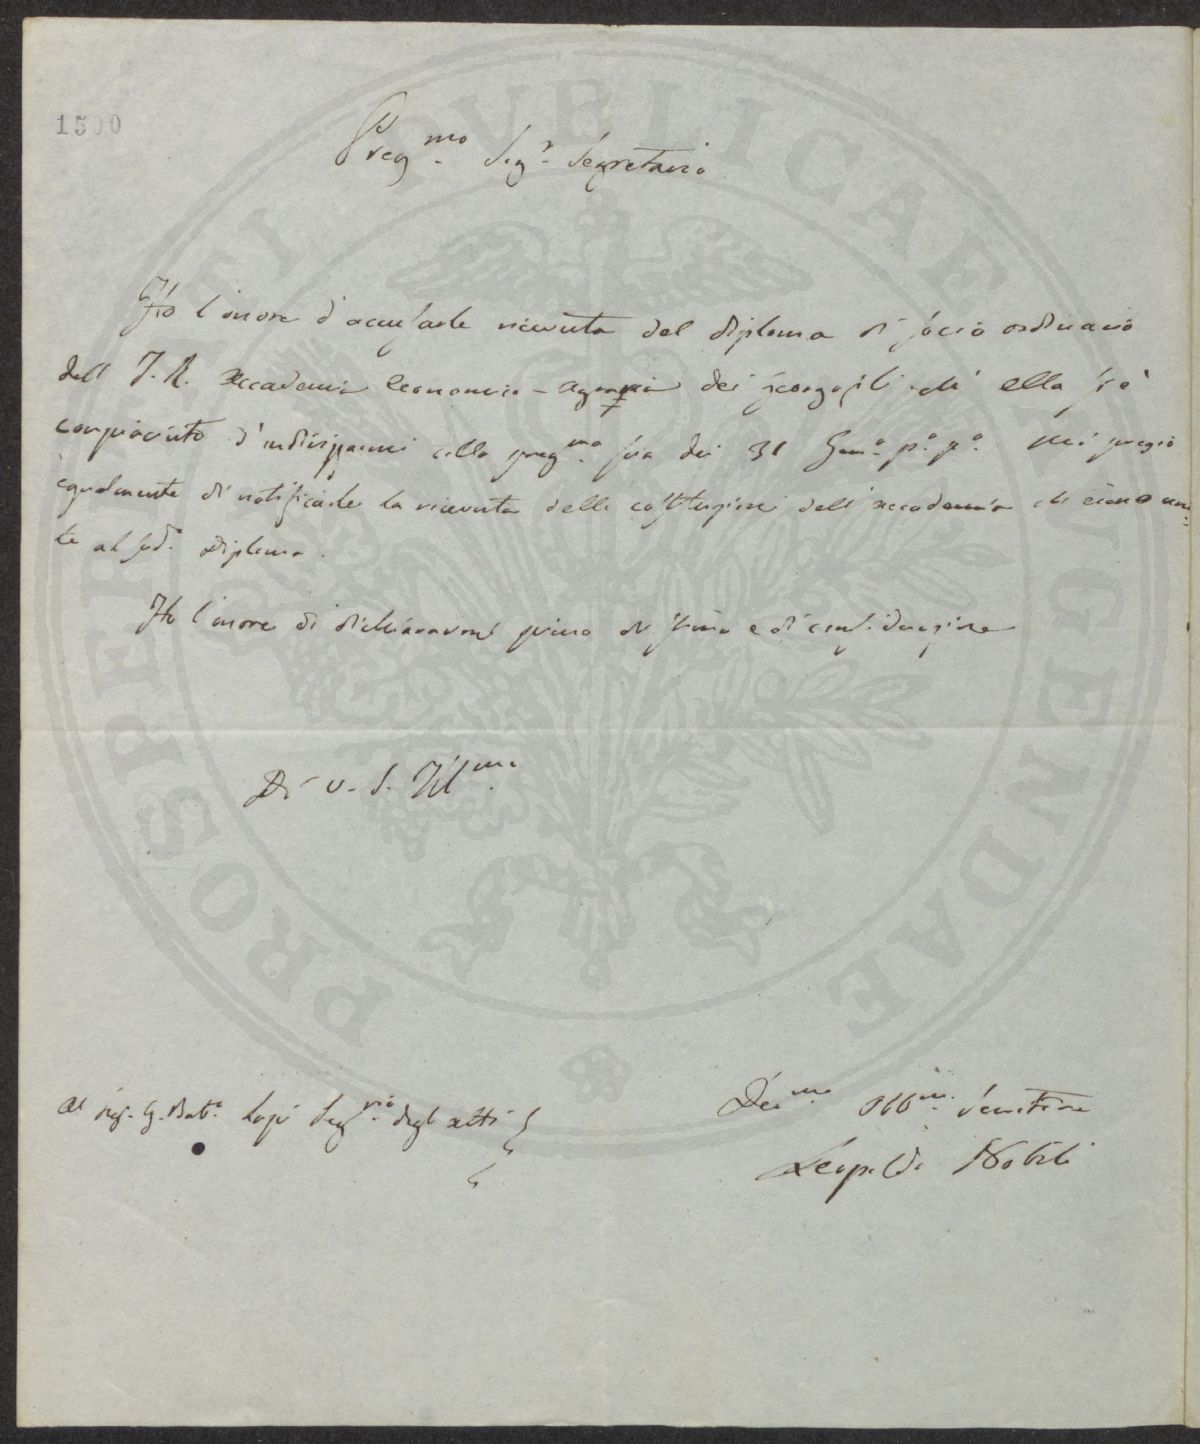 1500
Preg.mo Sig.r Segretario
Ho l'onore d'accusarle ricevuta del diploma di socio ordinario
dell' I. R. Accademia Economico-agraria dei georgofili che ella s'è
compiaciuto d'indirizzarmi colla preg.ma sua dei 31 Gen.o p.o p.o Mi pregio
egualmente di notificarle la ricevuta delle costituzioni dell'accademia che erano uni-
te al sud.o diploma.
Ho l'onore di dichiararmi pieno di stima e di considerazione
Di V. S. Ill.ma
Al Sig. G. Bat.a Lapi Seg.rio degli atti
Dev.mo Obb.mo Servitore
Leopoldo Nobili
PROSPERITATI PVBLICAE AVGENDAE